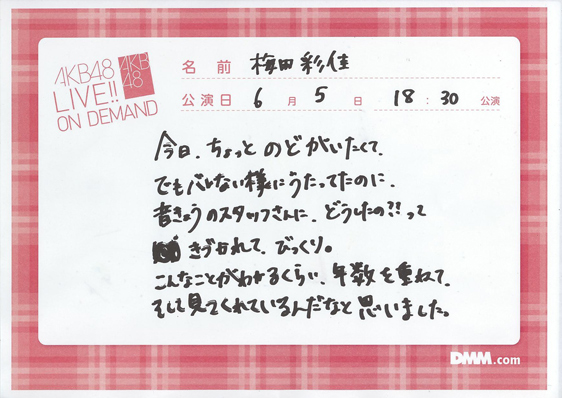 AKB48
LIVE!!
ON DEMAND
AKB
48
名前 梅田彩佳
公演日 6月5日 18:30公演
今日、ちょっとのどがいたくて、
でもバレない様にうたってたのに、
音きょうのスタッフさんに、どうしたの?!って
きづかれて、びっくり。
こんなことがわかるくらい、年数を重ねて、
そして見てくれているんだなと思いました。
DMM.com